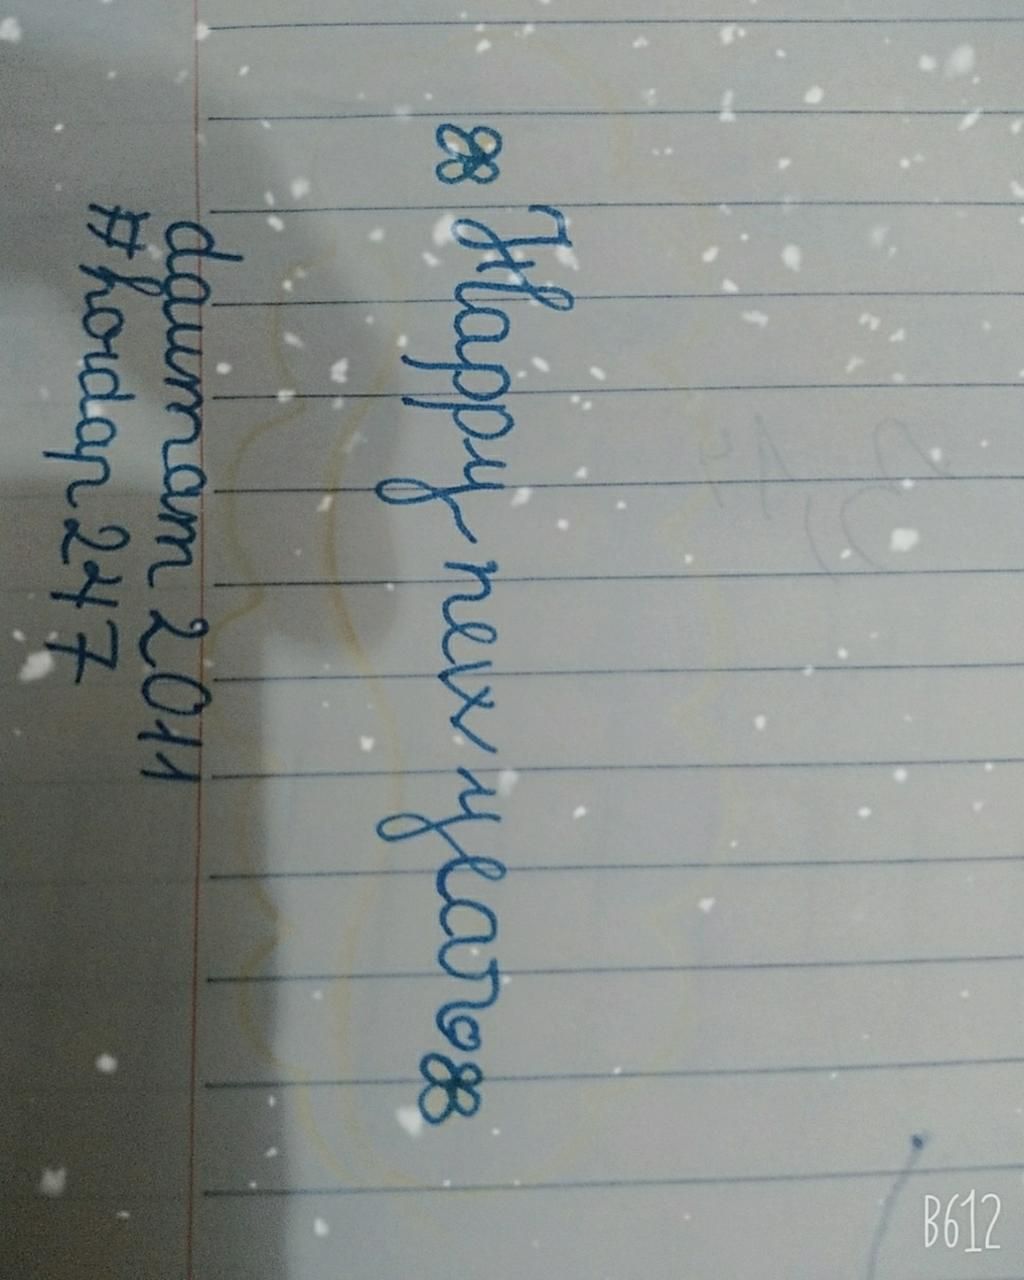 Happy new year
daumam2011
#hoidap247
B612